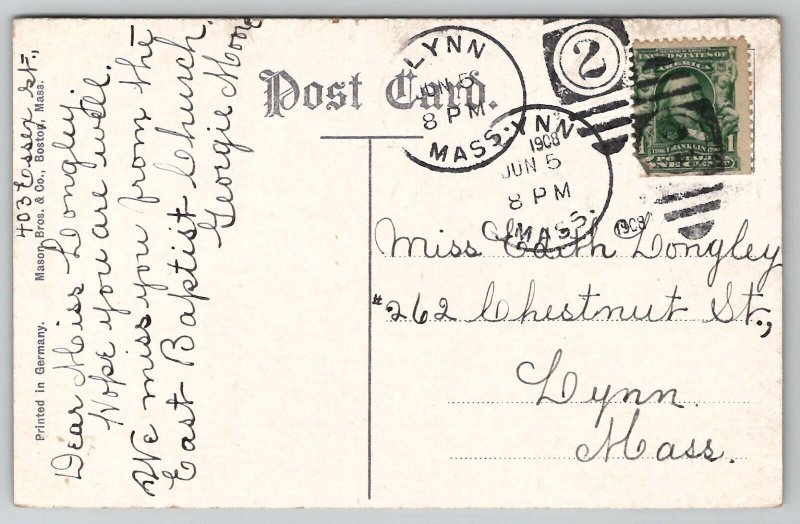 Post Card.
LYNN
JUN 5
8 PM
MASS.
LYNN
1908
JUN 5
8 PM
MASS.
1908
2
UNITED STATES OF
AMERICA
FRANKLIN
1 1
POSTAGE
ONE CENT
Miss Edith Longley
#262 Chestnut St.,
Lynn.
Mass.
403 Essex St.,
Dear Miss Longley.
Hope you are well.
We miss you from the
East Baptist Church.
Georgie Moore
Printed in Germany. Mason Bros. & Co., Boston, Mass.